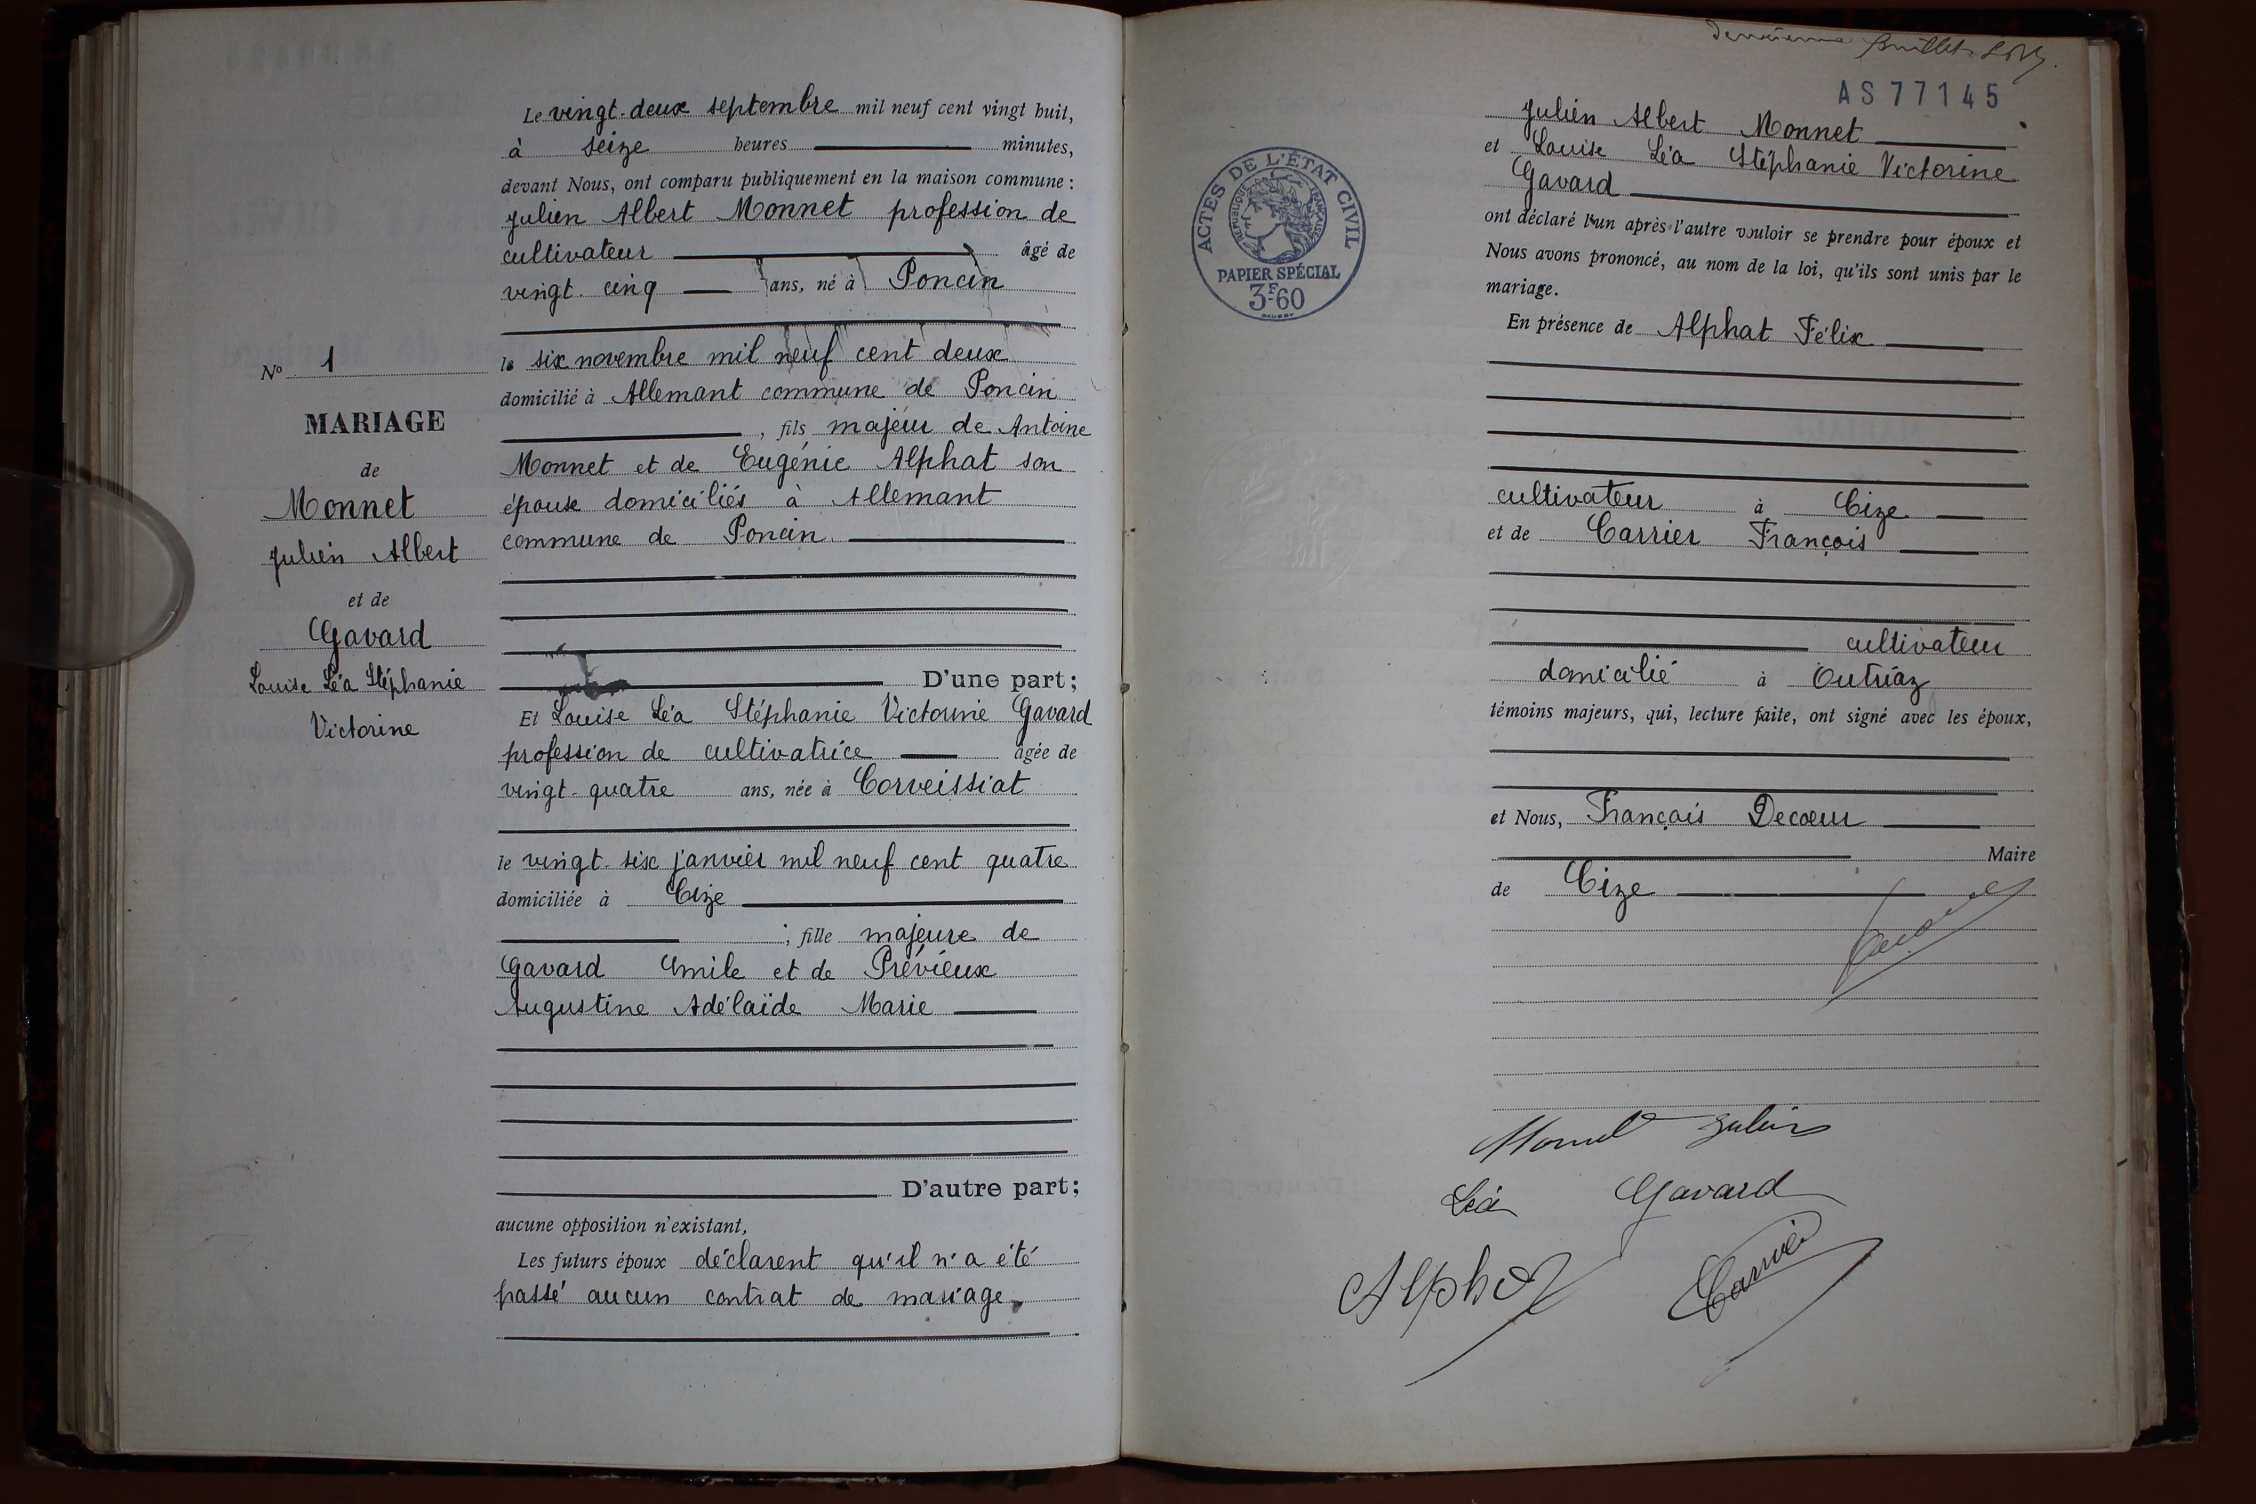 Le vingt-deux septembre mil neuf cent vingt huit,
à seize heures minutes,
devant Nous, ont comparu publiquement en la maison commune :
Julien Albert Monnet profession de
cultivateur âgé de
vingt cinq ans, né à Poncin
le six novembre mil neuf cent deux
domicilié à Allemant commune de Poncin
, fils majeur de Antoine
Monnet et de Eugénie Alphat son
épouse domiciliés à Allemant
commune de Poncin.
D'une part;
Et Louise Léa Stéphanie Victorine Gavard
profession de cultivatrice âgée de
vingt-quatre ans, née à Corveissiat
le vingt-six janvier mil neuf cent quatre
domiciliée à Cize
; fille majeure de
Gavard Emile et de Prévieux
Augustine Adélaïde Marie
D'autre part;
aucune opposition n'existant,
Les futurs époux déclarent qu'il n'a été
passé aucun contrat de mariage.
No 1
MARIAGE
de
Monnet
Julien Albert
et de
Gavard
Louise Léa Stéphanie
Victorine
AS77145
ACTES DE L'ÉTAT CIVIL
RÉPUBLIQUE FRANÇAISE
PAPIER SPÉCIAL
3F60
Julien Albert Monnet
et Louise Léa Stéphanie Victorine
Gavard
ont déclaré l'un après l'autre vouloir se prendre pour époux et
Nous avons prononcé, au nom de la loi, qu'ils sont unis par le
mariage.
En présence de Alphat Félix
cultivateur à Cize
et de Carrier François
cultivateur
domicilié à Outriaz
témoins majeurs, qui, lecture faite, ont signé avec les époux,
et Nous, François Decœur
Maire
de Cize
Monnet Julien
Léa Gavard
Alphat
Carrier